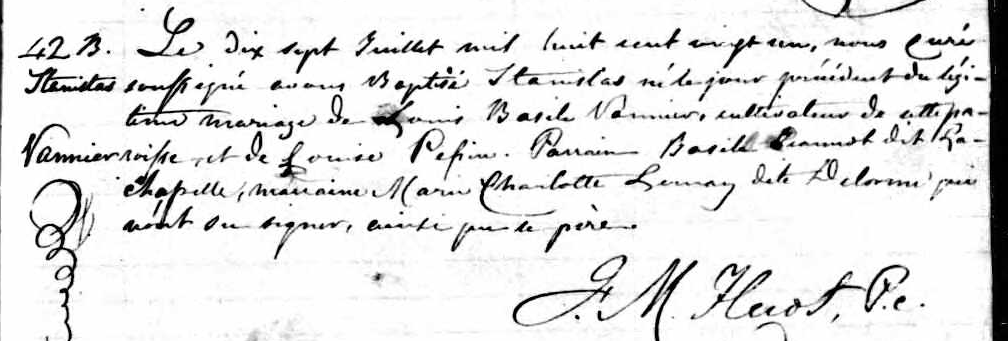 42 B. Le dix sept Juillet mil huit cent vingt un, nous Curé
Stanislas soussigné avons Baptisé Stanislas né le jour précédent du légi-
time mariage de Louis Basile Vannier, cultivateur de cette pa-
Vannier roisse, et de Louise Pepin. Parrain Basile Jeannot dit La-
chapelle, marraine Marie Charlotte Lemay dite Delorme qui
n'ont su signer, ainsi que le père.
F. M. Huot, P.c.